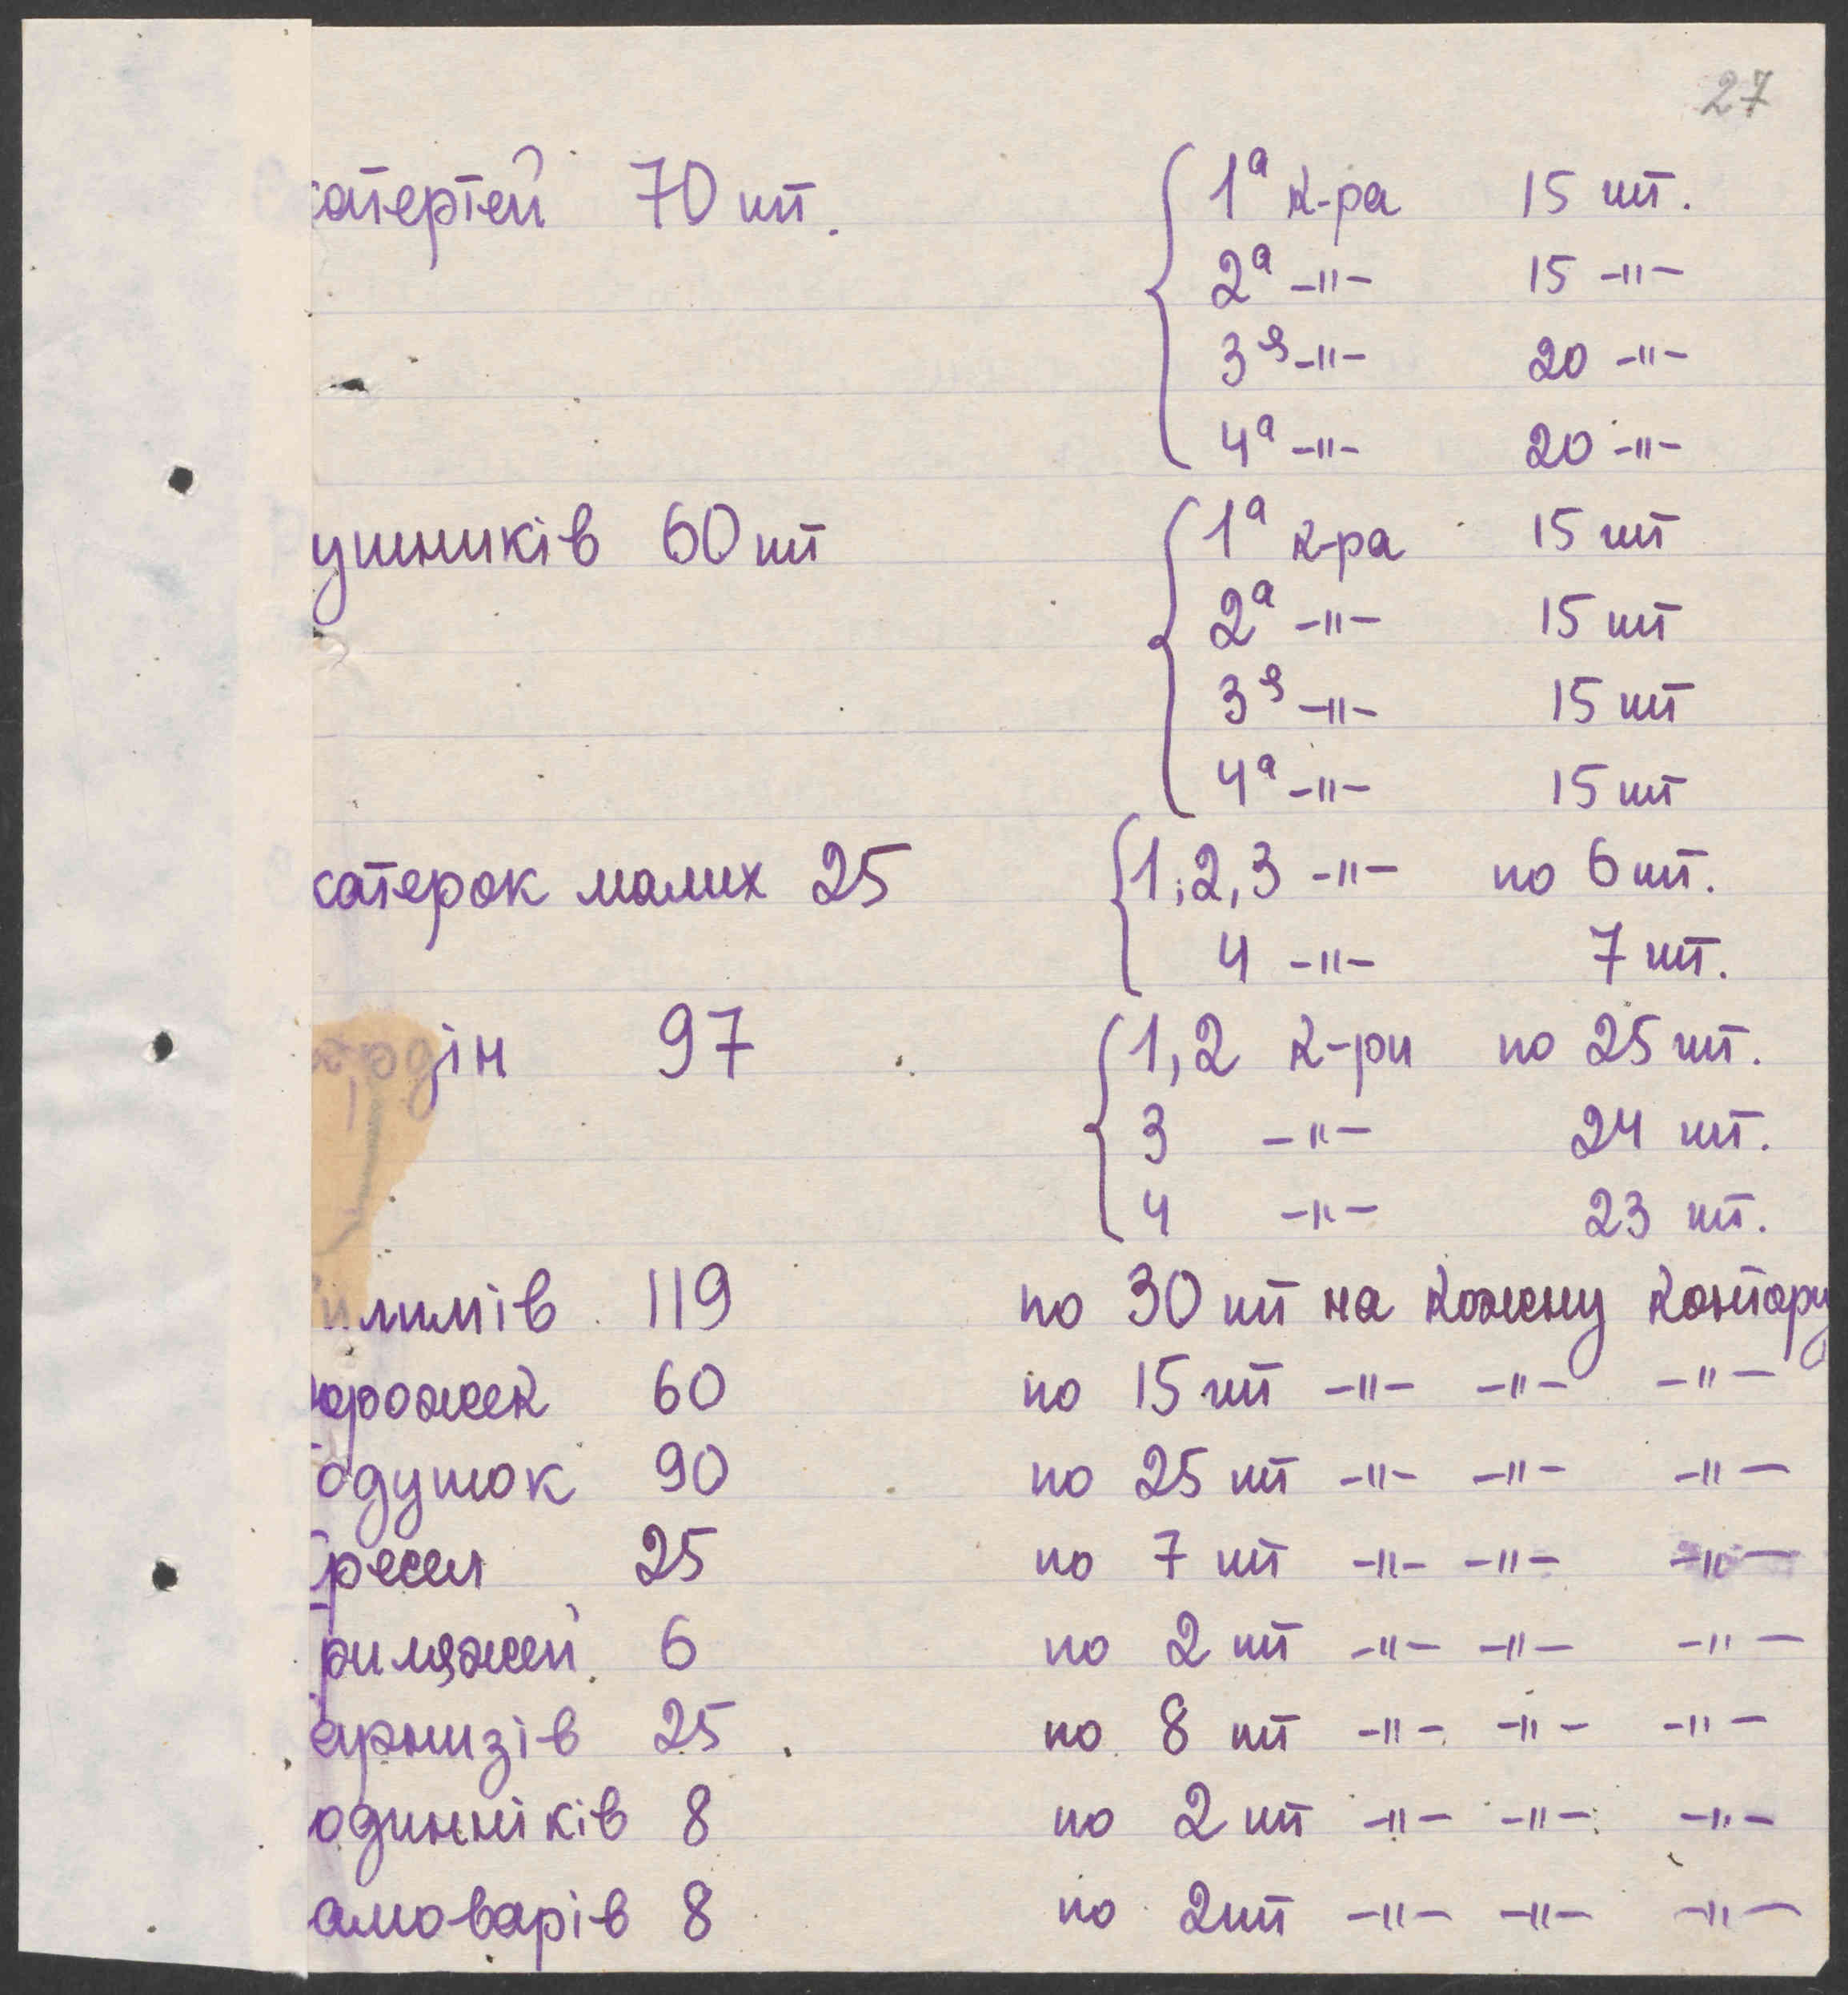 27
катертей 70 шт. 1а к-ра 15 шт.
2а -"- 15 -"-
3я -"- 20 -"-
4а -"- 20 -"-
ушників 60 шт 1а к-ра 15 шт
2а -"- 15 шт
3я -"- 15 шт
4а -"- 15 шт
катерок малих 25 1,2,3 -"- по 6 шт.
4 -"- 7 шт.
гардін 97 1,2 к-ри по 25 шт.
3 -"- 24 шт.
4 -"- 23 шт.
илимів 119 по 30 шт на кожну контору
орожек 60 по 15 шт -"- -"- -"-
одушок 90 по 25 шт -"- -"- -"-
ресел 25 по 7 шт -"- -"- -"-
рилюжей 6 по 2 шт -"- -"- -"-
арнизів 25 по 8 шт -"- -"- -"-
одинників 8 по 2 шт -"- -"- -"-
амоварів 8 по 2 шт -"- -"- -"-